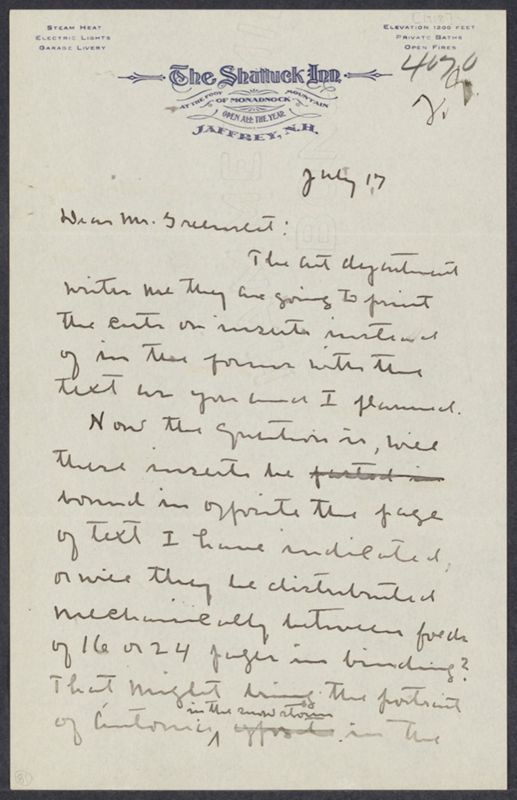 STEAM HEAT
ELECTRIC LIGHTS
GARAGE LIVERY
ELEVATION 1200 FEET
PRIVATE BATHS
OPEN FIRES
The Shattuck Inn
AT THE FOOT OF MONADNOCK MOUNTAIN
OPEN ALL THE YEAR
JAFFREY, N.H.
July 17
Dear Mr. Greenslet:
The art department
writes me they are going to print
the cuts on inserts instead
of in the forms with the
text as you and I planned.
Now the question is, will
these inserts be pasted in
bound in opposite the page
of text I have indicated,
or will they be distributed
mechanically between folds
of 16 or 24 pages in binding?
That might bring the portrait
of Ántonia in the snow storm in the